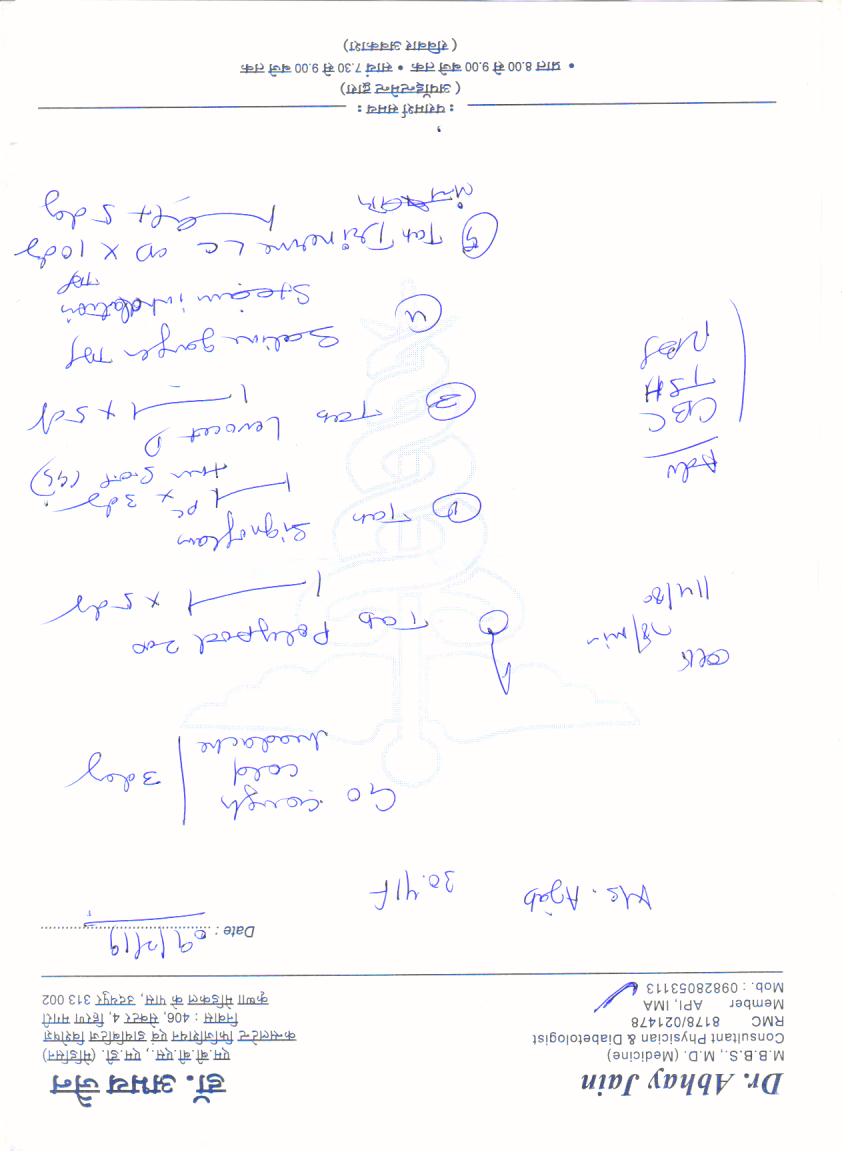 Dr. Abhay Jain
M.B.B.S., M.D. (Medicine)
Consultant Physician & Diabetologist
RMC 8178/021478
Member API, IMA
Mob. : 09828053113
डॉ. अभय जैन
एम.बी.बी.एस., एम.डी. (मेडिसिन)
कन्सलटेन्ट फिजिशियन एवं डायबिटिज विशेषज्ञ
निवास : 406, सेक्टर 4, हिरण मगरी
कृष्णा मेडिकल के पास, उदयपुर 313 002
Date : 9/2/19
Ms. Ajab 30.41F
C/O cough
cold
headache
3 day
78/min
114/80
① Tab Polypod 200
1 1 x 5 day
② Tab Signoflam
1 1 PC x 3 day
③ Tab Levocet D
1 1 x 5 d
Adv
CBC
TSH
RBS
④ Saline gargle TDS
Steam inhalation
TDS
⑤ Tab Trinerve LC OD X 10 day
: परामर्श समय :
( अपॉइन्टमेन्ट द्वारा )
• प्रातः 8.00 से 9.00 बजे तक • सायं 7.30 से 9.00 बजे तक
( रविवार अवकाश )